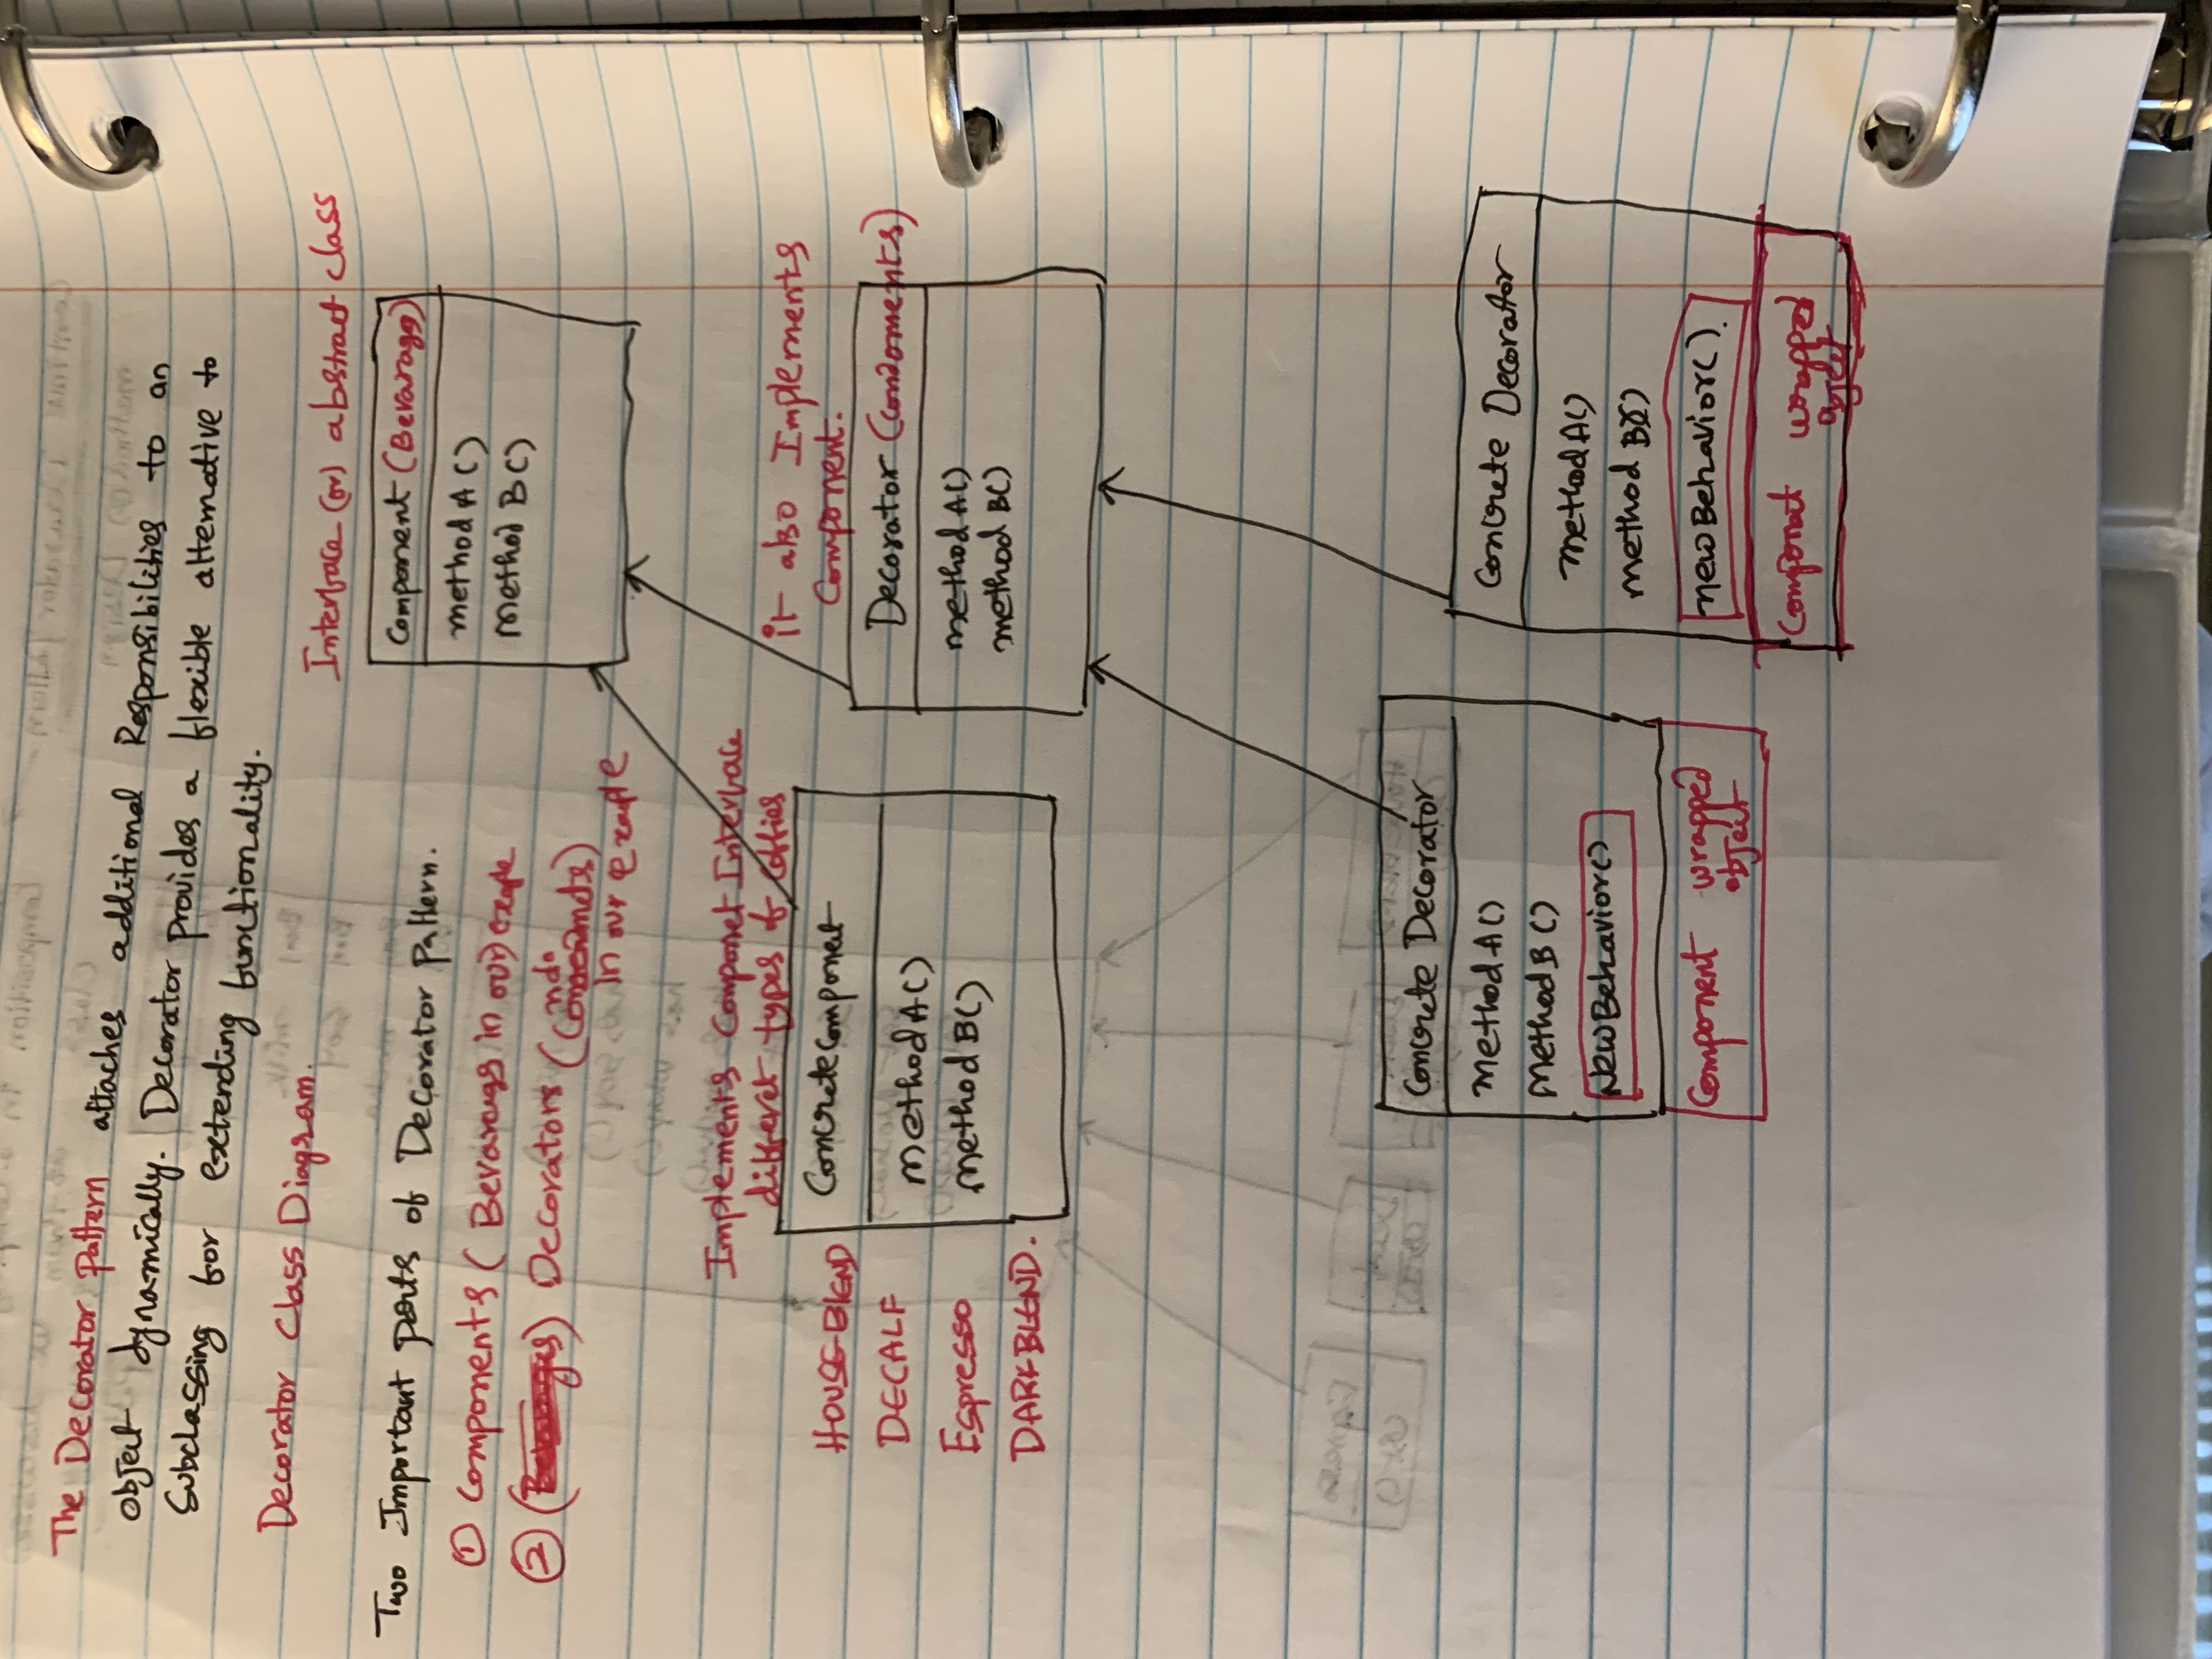 The Decorator Pattern attaches additional Responsibilities to an
object dynamically. Decorator provides a flexible alternative to
Subclassing for extending functionality.
Decorator Class Diagram.
Two Important parts of Decorator Pattern.
① Components (Bevarags in our) exaple
② Decorators (Condoments)
In our exaple
Interface (or) abstract class
Component (Bevarags)
method A ()
method B ()
Implements Componet Interface
differet types of Coffies
HOUSE-BLEND
DECALF
Espresso
DARKBLEND.
Concrete Component
method A()
method B()
it also Implements
Component.
Decorator (condoments)
method A()
method B()
Concrete Decorator
method A()
method B ()
NewBehavior()
Component wrapped
object
Concrete Decorator
method A()
method B()
newBehavior().
Componat wrapped
object